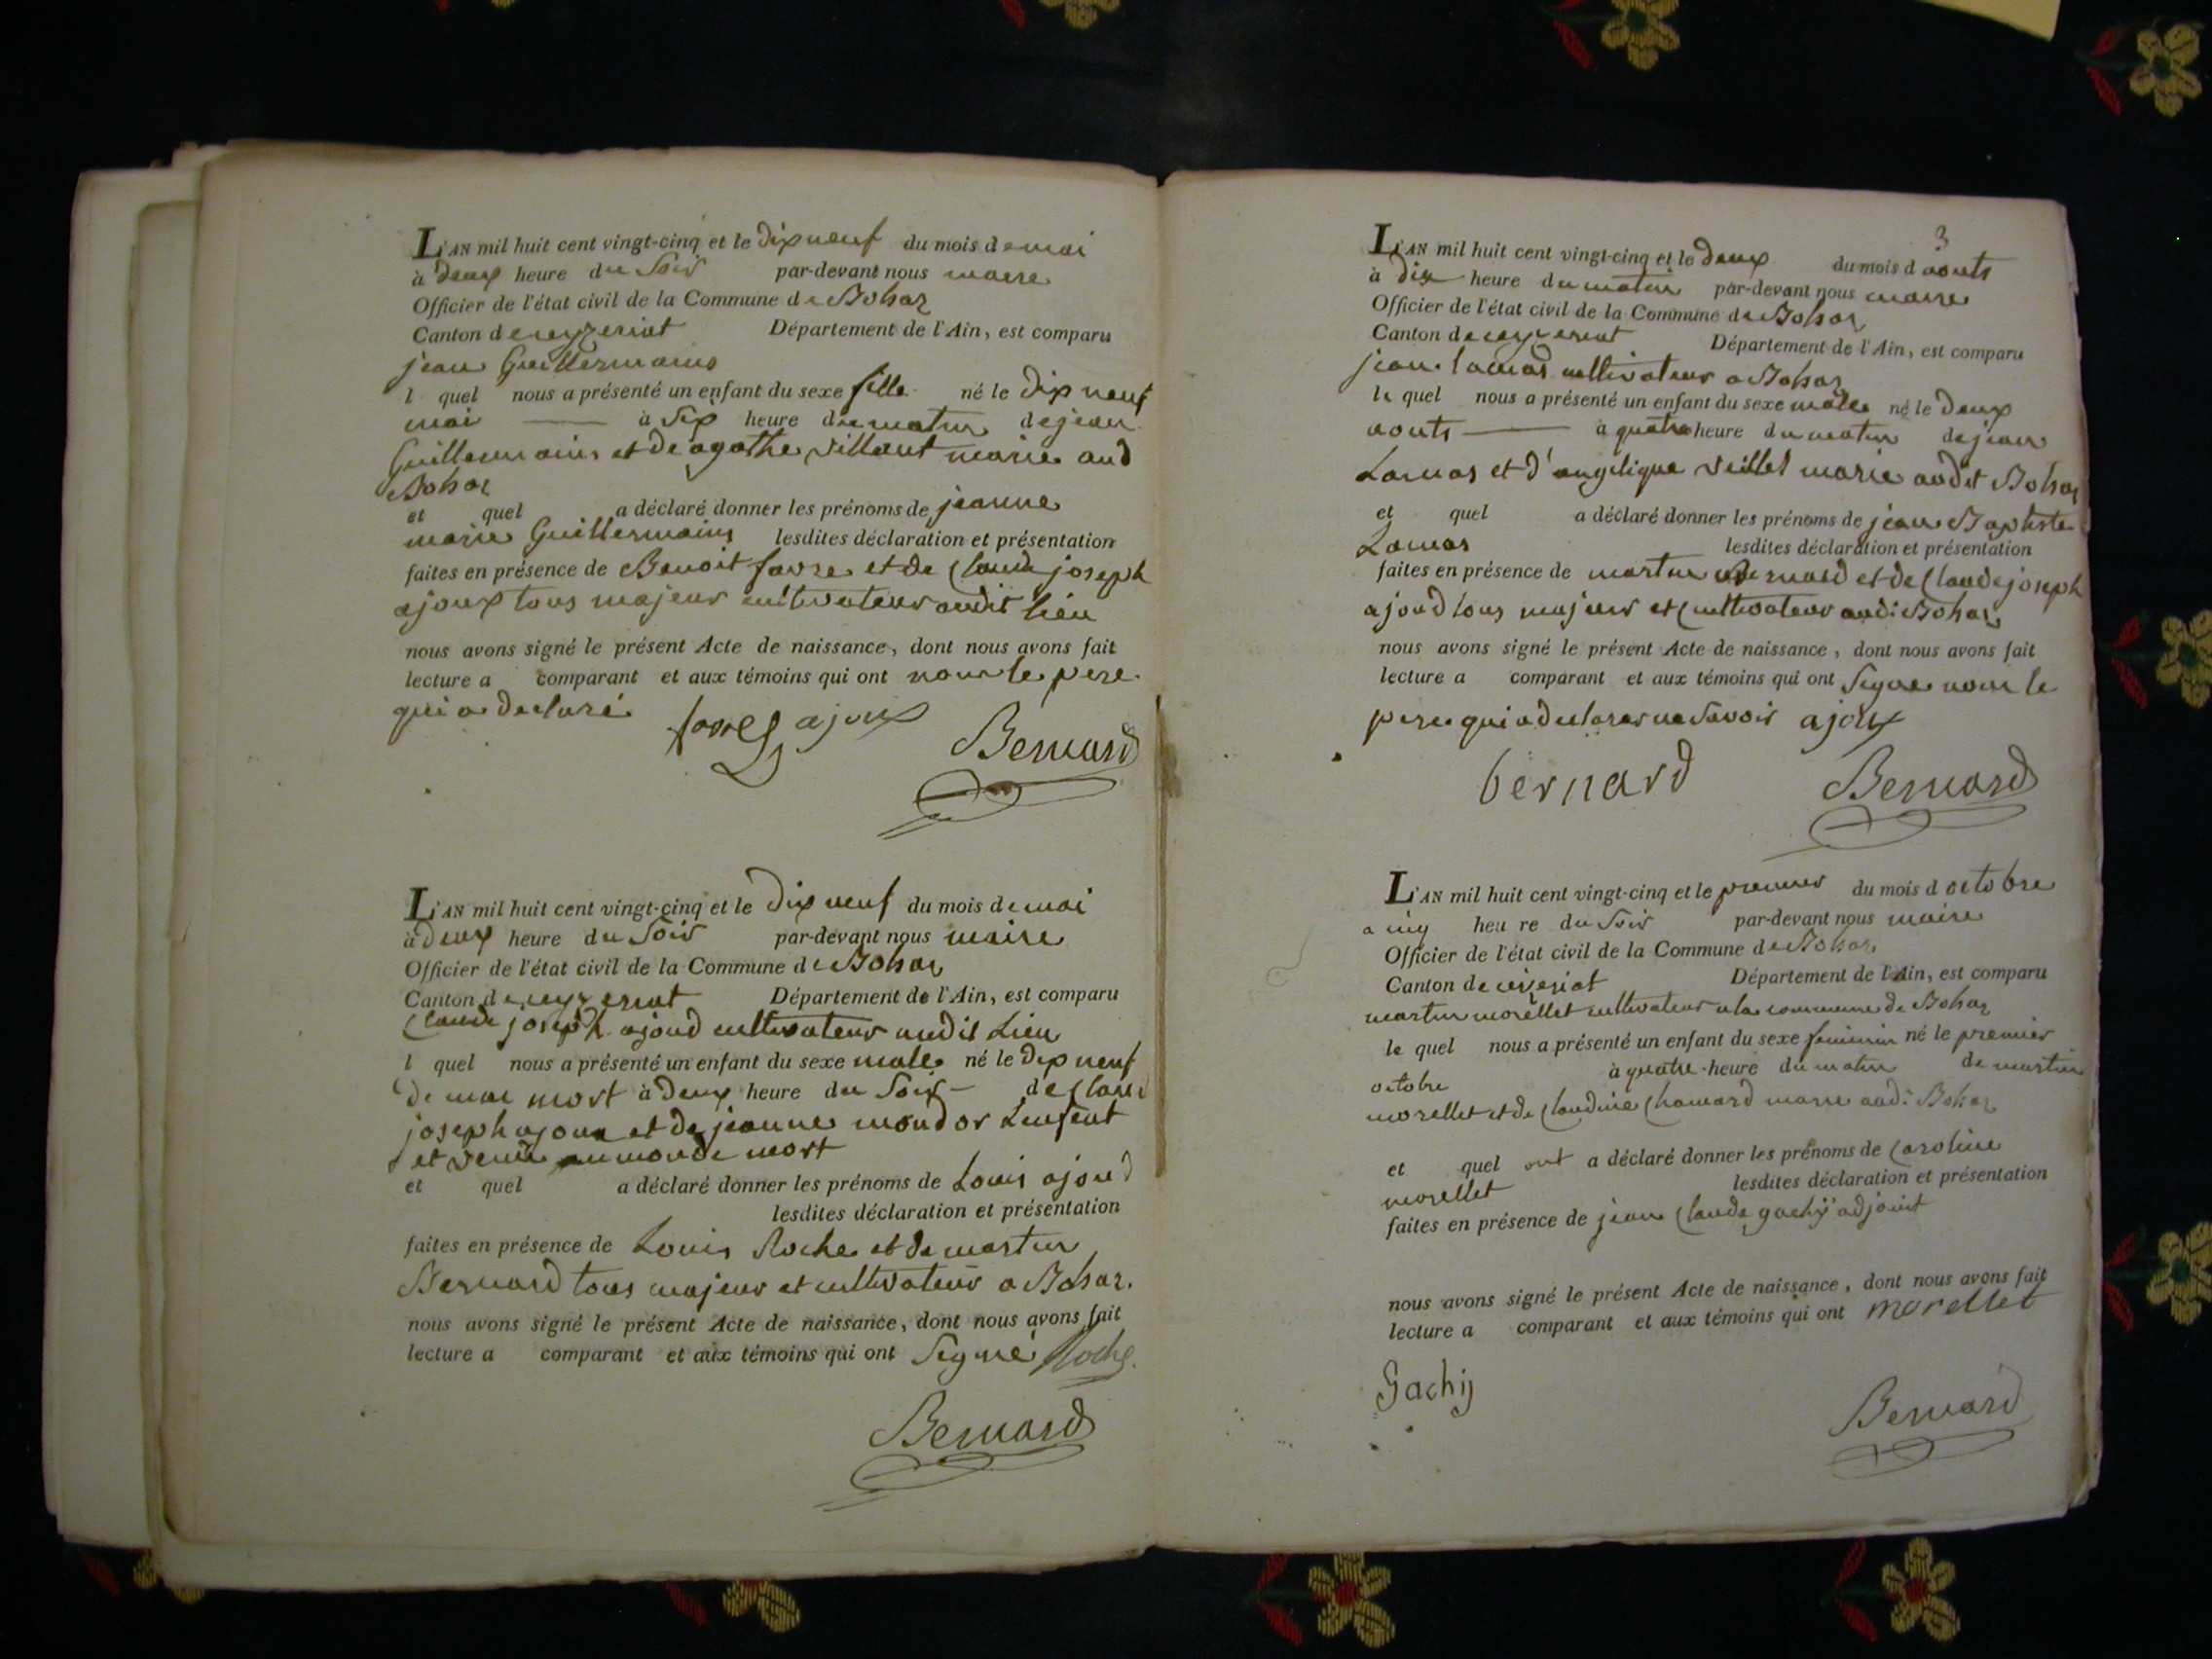 L'AN mil huit cent vingt-cinq et le dix neuf du mois de mai
à deux heure du Soir par-devant nous maire
Officier de l'état civil de la Commune de Bohaz
Canton de ceyzeriat Département de l'Ain, est comparu
jean Guillermains
l quel nous a présenté un enfant du sexe fille né le dix neuf
mai à Six heure du matin de jean
Guillermains et de agathe villaut marie aud
Bohaz
et quel a déclaré donner les prénoms de jeanne
marie Guillermains lesdites déclaration et présentation
faites en présence de Benoit favre et de Claude joseph
ajoux tous majeur cultivateur audit lieu
nous avons signé le présent Acte de naissance, dont nous avons fait
lecture a comparant et aux témoins qui ont non le pere
qui a declaré
favre ajoux
Bernard
L'AN mil huit cent vingt-cinq et le dix neuf du mois de mai
à deux heure du Soir par-devant nous maire
Officier de l'état civil de la Commune de Bohaz
Canton de ceyzeriat Département de l'Ain, est comparu
Claude joseph ajoud cultivateur audit Lieu
l quel nous a présenté un enfant du sexe male né le dix neuf
de mai mort à deux heure du Soir de Claude
joseph ajoux et de jeanne mondor Lenfent
et venu au monde mort
et quel a déclaré donner les prénoms de Louis ajoud
lesdites déclaration et présentation
faites en présence de Louis Roche et de martin
Bernard tous majeur et cultivateur a Bohaz.
nous avons signé le présent Acte de naissance, dont nous avons fait
lecture a comparant et aux témoins qui ont Signé Roche
Bernard
3
L'AN mil huit cent vingt-cinq et le deux du mois d aouts
à dix heure du matin par-devant nous maire
Officier de l'état civil de la Commune de Bohaz
Canton de ceyzeriat Département de l'Ain, est comparu
jean Lamas cultivateur a Bohaz
le quel nous a présenté un enfant du sexe malle né le deux
aouts à quatre heure du matin de jean
Lamas et d'angelique veillet marie audit Bohaz
et quel a déclaré donner les prénoms de jean Baptiste
Lamas lesdites déclaration et présentation
faites en présence de martin Bernard et de Claude joseph
ajoud tous majeur et Cultivateur audi: Bohaz
nous avons signé le présent Acte de naissance, dont nous avons fait
lecture a comparant et aux témoins qui ont Signe non le
pere qui a declarer ne Savoir ajoux
bernard Bernard
L'AN mil huit cent vingt-cinq et le premier du mois d octobre
a cinq heure du Soir par-devant nous maire
Officier de l'état civil de la Commune de Bohaz
Canton de Département de l'Ain, est comparu
martin morellet cultivateur a la commune de Bohaz
le quel nous a présenté un enfant du sexe feminin né le premier
octobre à quatre heure du matin de martin
morellet et de Claudine Chanard marie aud: Bohaz
et quel ont a déclaré donner les prénoms de Caroline
morellet lesdites déclaration et présentation
faites en présence de jean Claude gachÿ adjoint
nous avons signé le présent Acte de naissance, dont nous avons fait
lecture a comparant et aux témoins qui ont morellet
Gachij
Bernard